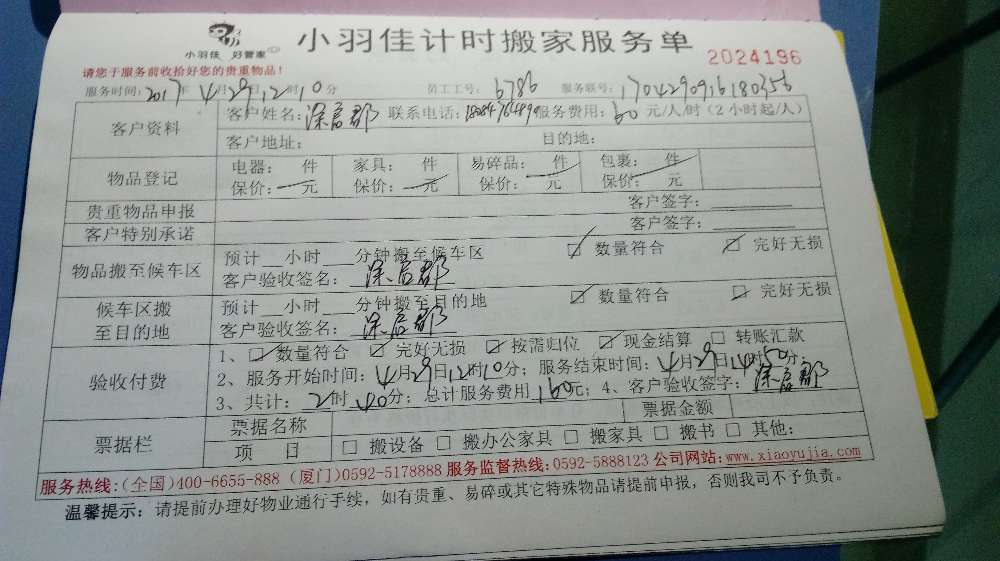 小羽佳 好管家
小羽佳计时搬家服务单
2024196
请您于服务前收拾好您的贵重物品!
服务时间:2017年4月29日12时10分 员工工号:6786 服务联号:1704290916180356
客户资料 客户姓名: 联系电话: 服务费用:60元/人/时(2小时起/人)
客户地址: 目的地:
物品登记 电器: 件 家具: 件 易碎品: 件 包裹: 件
保价: 元 保价: 元 保价: 元 保价: 元
贵重物品申报 客户签字:
客户特别承诺 客户签字:
物品搬至候车区 预计__小时___分钟搬至候车区 ☑ 数量符合 ☑ 完好无损
客户验收签名:
候车区搬至目的地 预计__小时___分钟搬至目的地 ☑ 数量符合 ☑ 完好无损
客户验收签名:
验收付费 1、☑ 数量符合 ☑ 完好无损 ☑ 按需归位 ☑ 现金结算 □ 转账汇款
2、服务开始时间:4月29日12时10分;服务结束时间:4月29日14时50分
3、共计:2时40分;总计服务费用160元;4、客户验收签字:
票据栏 票据名称 票据金额
项 目 □ 搬设备 □ 搬办公家具 □ 搬家具 □ 搬书 □ 其他:
服务热线:(全国)400-6655-888 (厦门)0592-5178888 服务监督热线:0592-5888123 公司网站:www.xiaoyujia.com
温馨提示:请提前办理好物业通行手续,如有贵重、易碎或其它特殊物品请提前申报,否则我司不予负责。